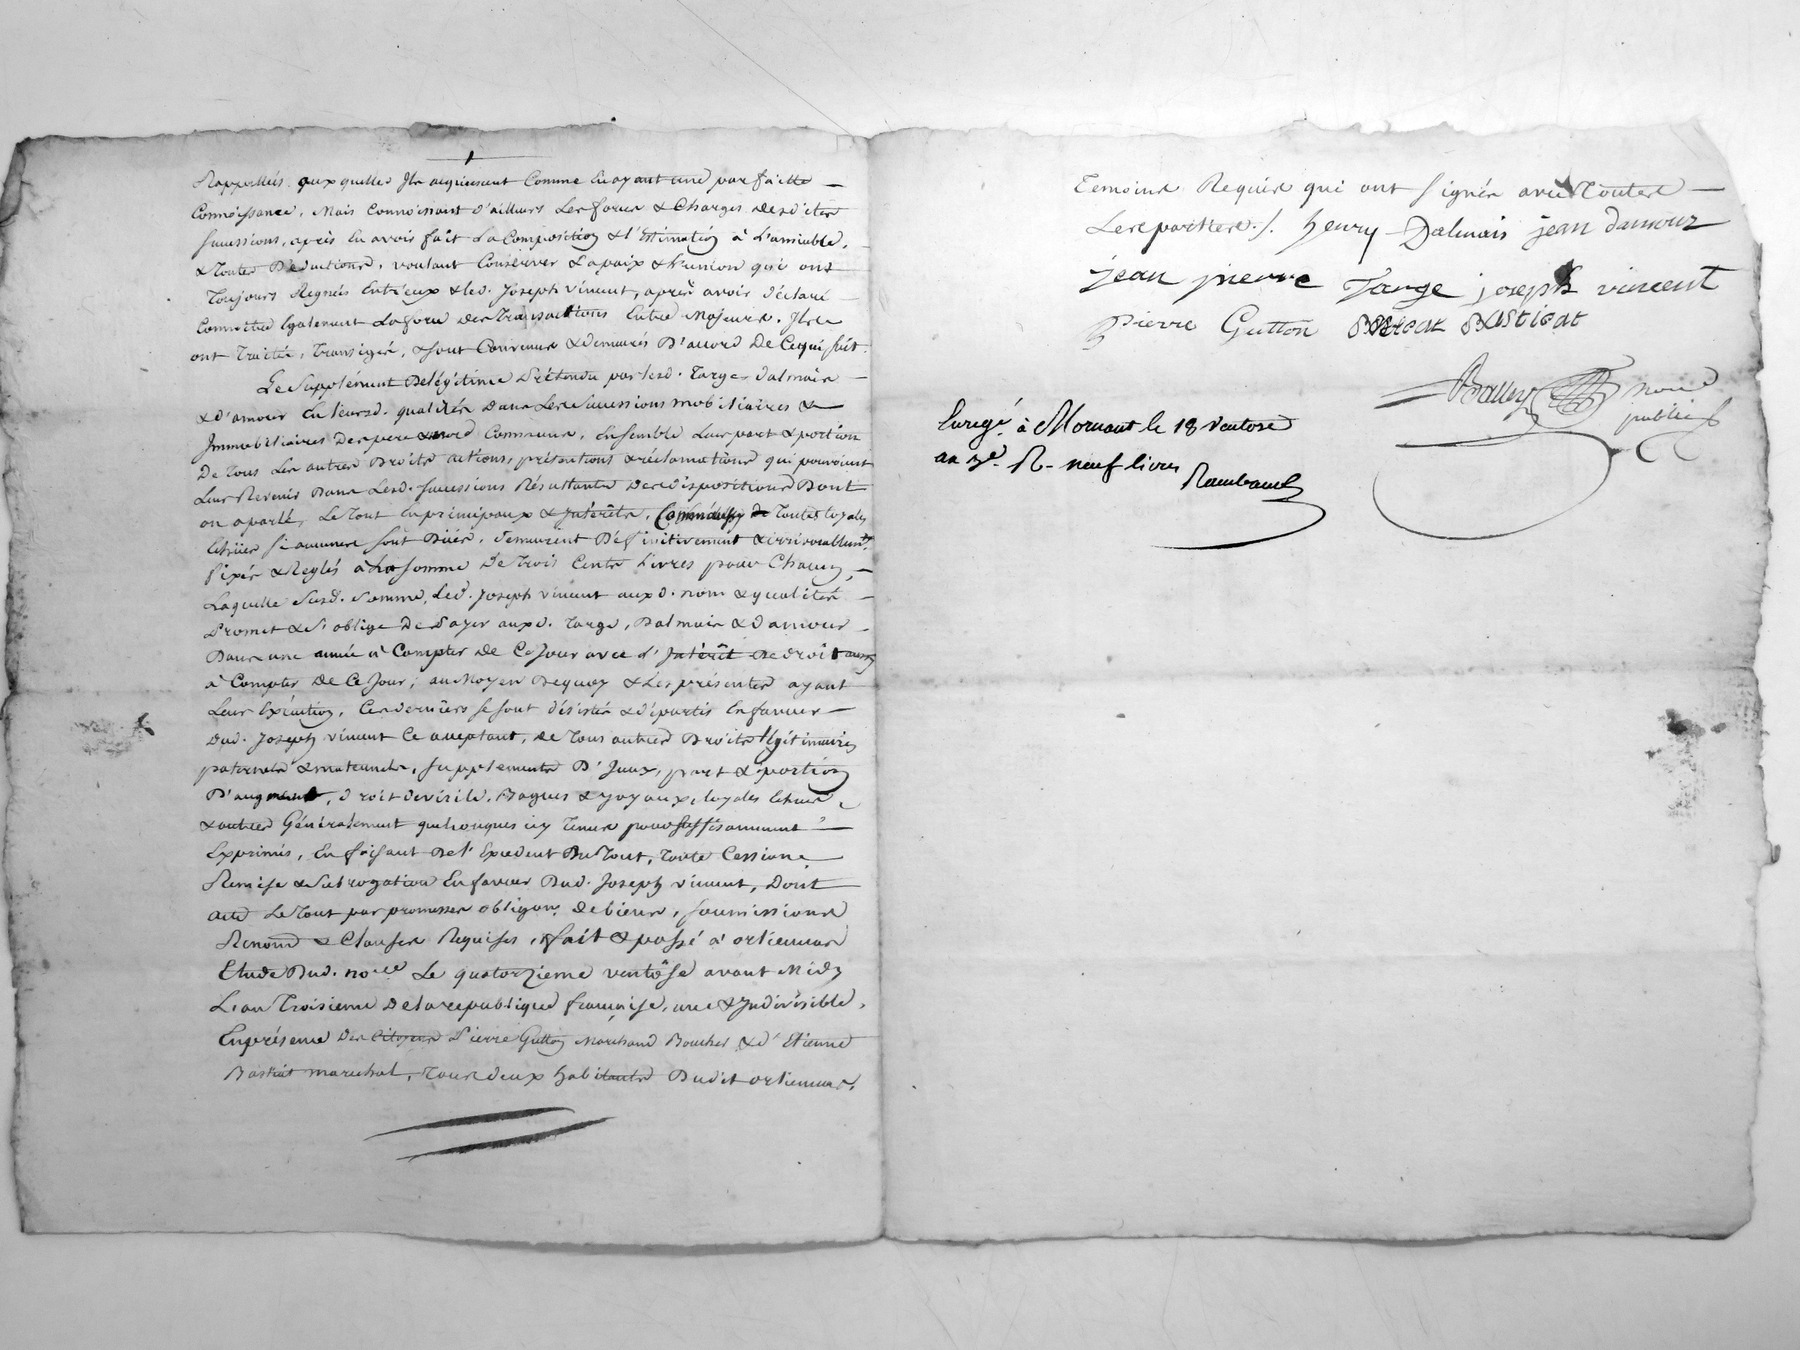 Rappellés, auxquelles Ils acquiescent Comme En ayant une parfaitte —
Connoissance, Mais Connoissant d'ailleurs Les forces & Charges desdites
successions, après En avoir fait La Composition & l'Estimation à L'amiable,
& Toutes Déductions, voulant Conserver La paix & l'union qui ont
Toujours Regnés Entr'eux & led. Joseph vincent, après avoir déclaré
Connoitre Egalement La force des Transactions Entre Majeurs, Ils
ont Traités, Transigés, & sont Convenus & demeurés D'accord De Ce qui suit.
Le Supplément De légitime Prétendu par lesd. Targe dalmais —
& d'amour En leursd. qualités Dans Les Successions mobiliaires &
Immobiliaires Des pere & mere Communs, Ensemble Leur part & portion
De Tous Les autres Droits actions, prétentions & réclamations qui pourroient
Leur Revenir Dans Lesd. successions Résultantes Des dispositions Dont
on a parlé, Le Tout En principaux & Intérêts, de Toutes loyales
Echües si aucunes sont Düës, demeurent Définitivement & irrévocablemt.
fixés & Reglés à La somme De Trois Cents Livres pour Chacun, —
Laquelle Susd. Somme, Led. Joseph vincent auxd. nom & qualités —
Promet & s'oblige De Payer auxd. Targe, Dalmais & d'amour —
Dans une année à Compter De Ce Jour avec l'Intérêt De droit aussy
à Compter De Ce Jour; au Moyen De quoy & Les présentes ayant
Leur Exécution, Ces derniers se sont désistés & départis En faveur —
Dud. Joseph vincent Ce acceptant, de Tous autres Droits légitimaires
paternels & maternels, supplements D'Iceux, part & portion
D'augment, droit de virile, Bagues & joyaux, loyales Echues,
& autres Généralement quelconques icy Tenus pour suffisamment —
Exprimés, En faisant De l'Excedent Du Tout, Toute Cessions
Remise & Subrogation En faveur Dud. Joseph vincent, Dont
acte Le Tout par promesses obligaon. de biens, soumissions
Renon & Clauses Requises, fait & passé à orliennas
Etude Dud. nore Le quatorzieme ventôse avant Midy
L'an Troisieme De la republique françoise, une & Indivisible,
En présence Des Citoyens Pierre Gutton Marchand Boucher & d'Etienne
Bastiat marechal, Tous deux habitants Dudit orliennas,
Temoins Requis qui ont signés avec Toutes —
Les parties ./. henry Dalmais jean damour
jean pierre Targe joseph vincent
pierre Gutton
Balley nore
public
Enregé. à Mornant le 18 ventose
an 3e. R. neuf livres
Raimbaud